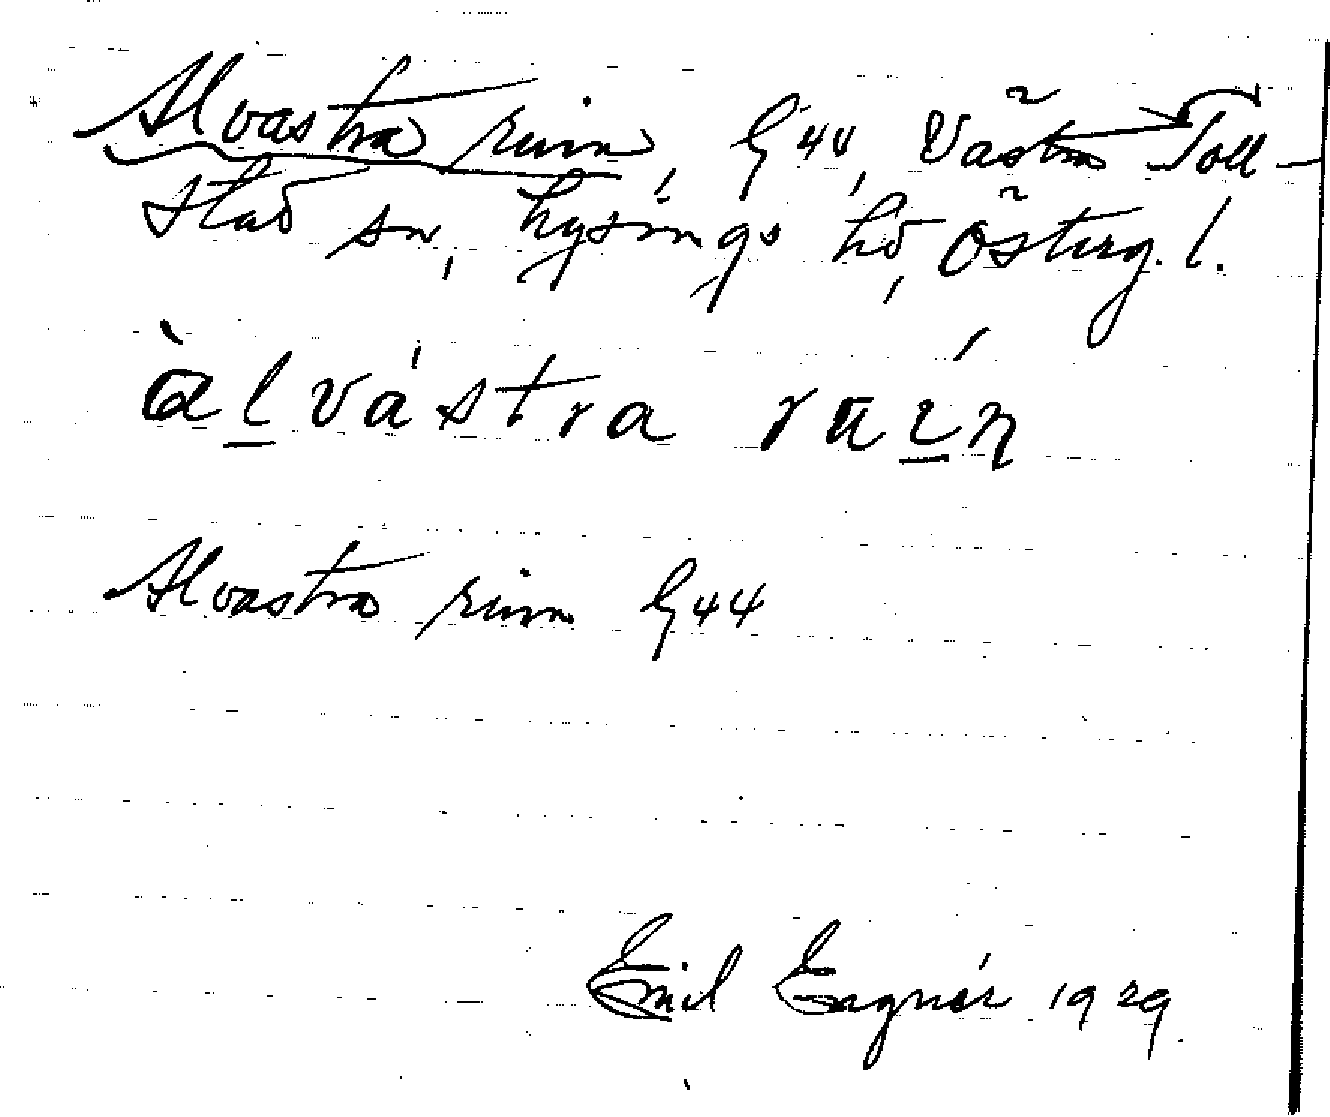 Alvastra ruin, G 44, Västra Toll-
stad sn, Lysings hd, Österg. l.
àlvástra ruin
Alvastra ruin G 44
Emil Eagnér 1929